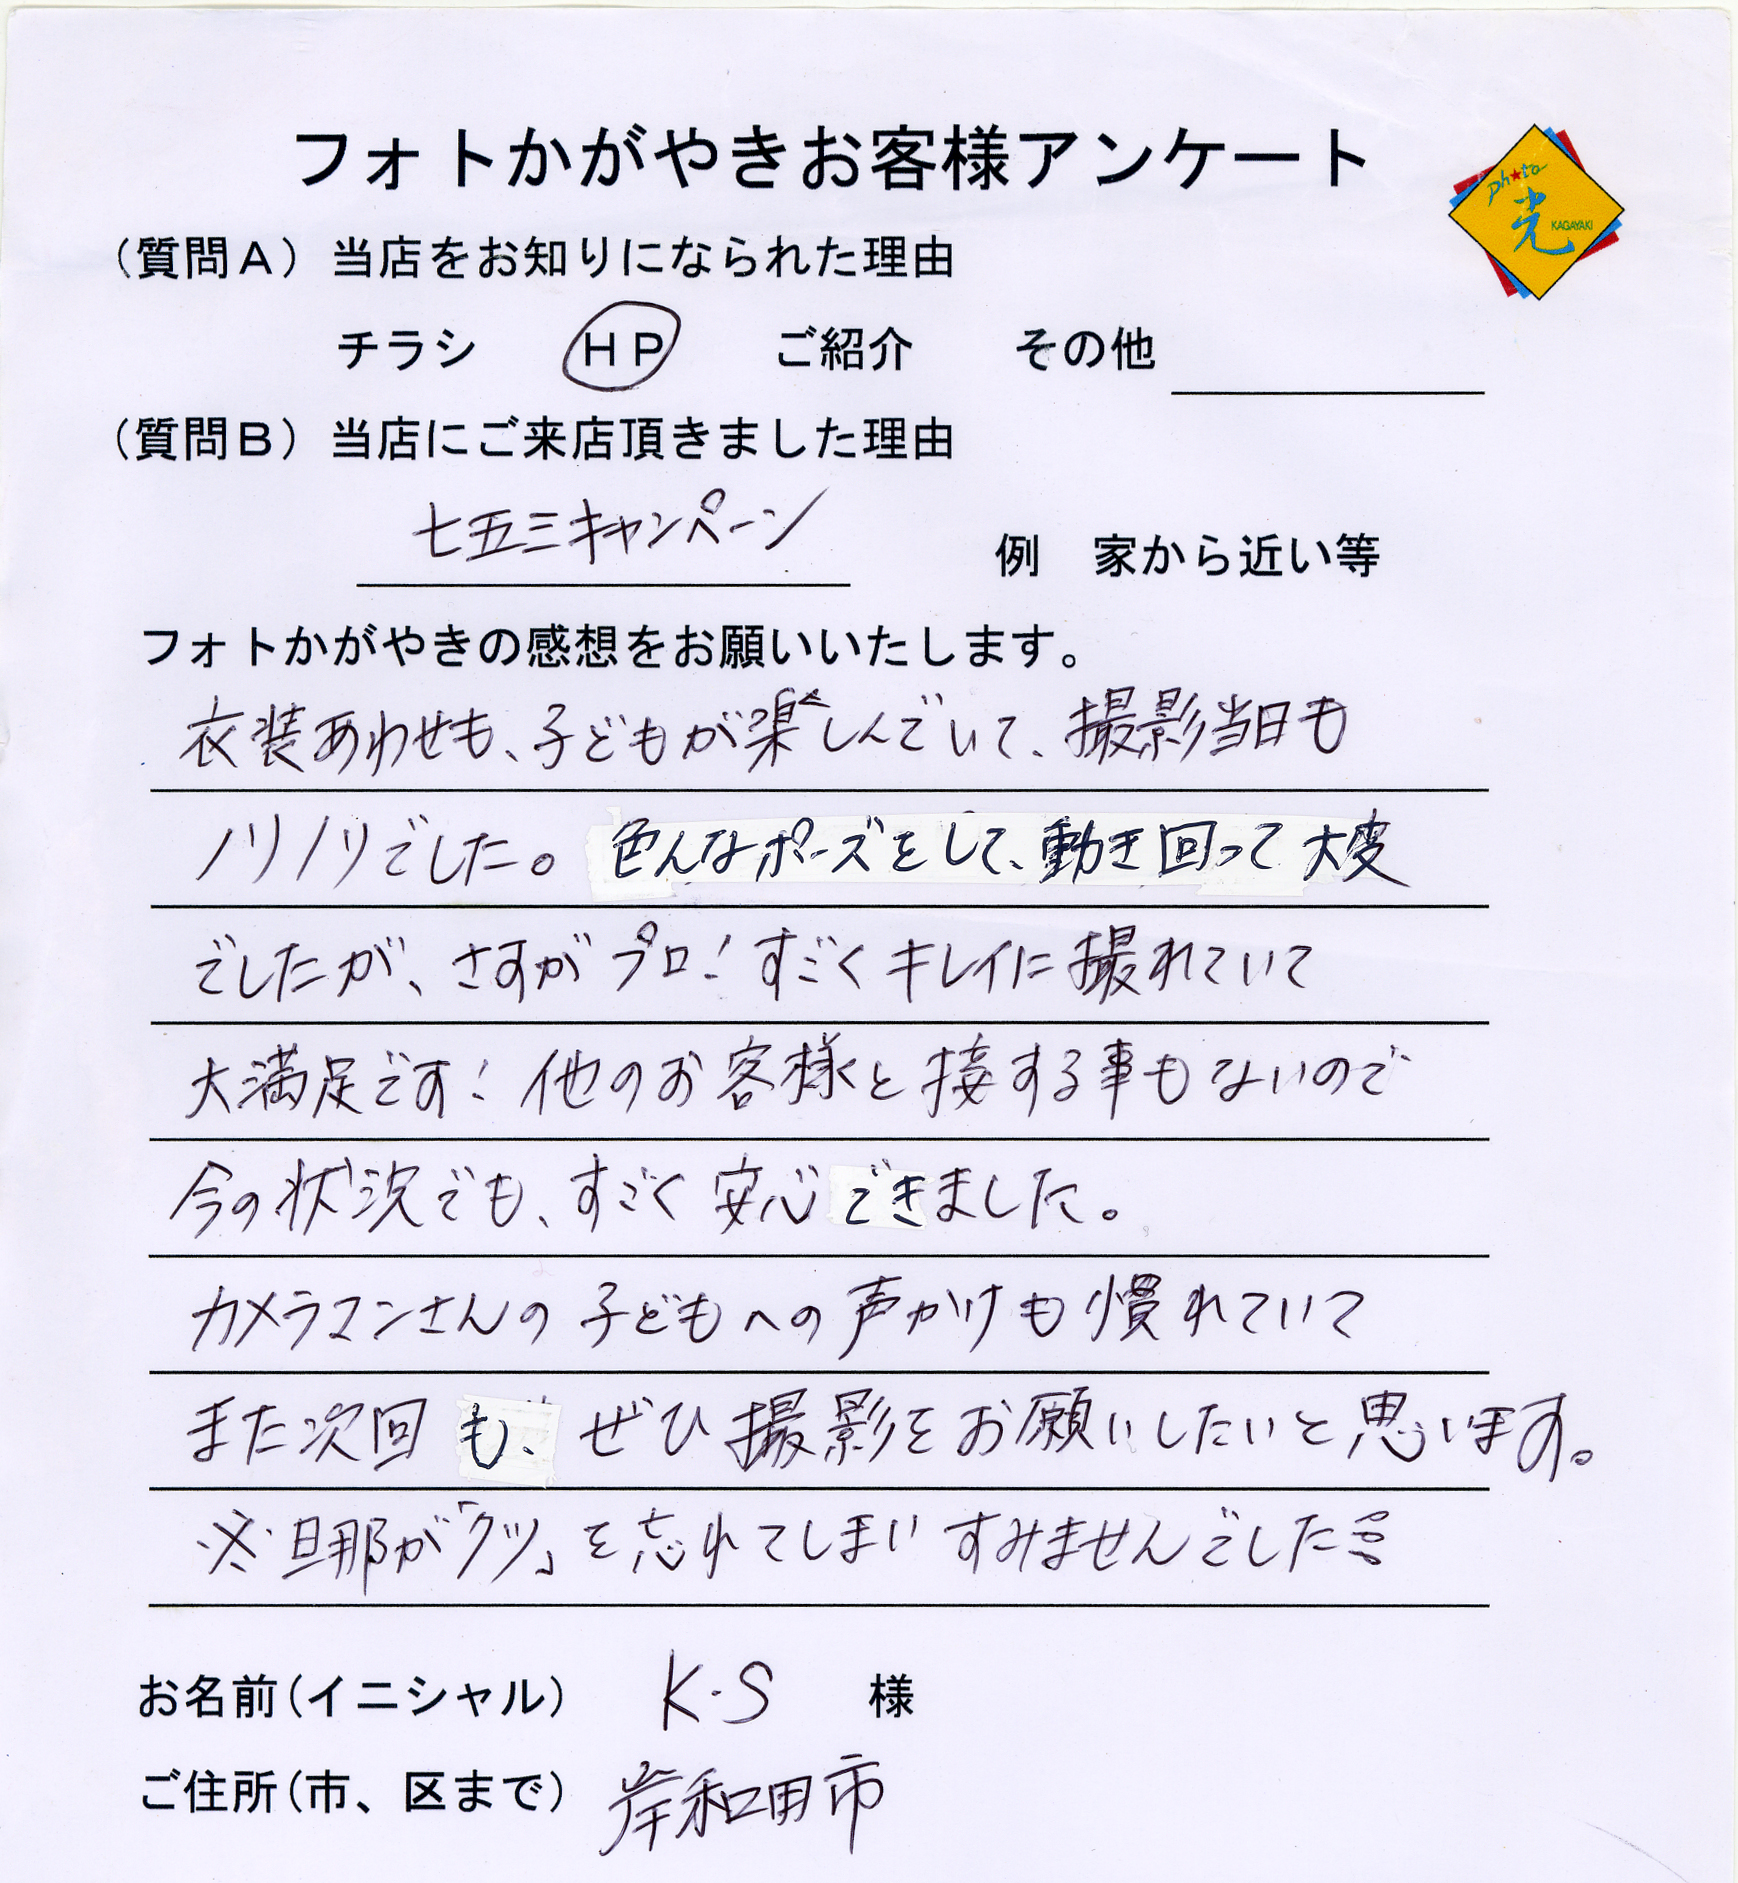 フォトかがやきお客様アンケート
photo 光 KAGAYAKI
（質問A）当店をお知りになられた理由
チラシ HP ご紹介 その他
（質問B）当店にご来店頂きました理由
七五三キャンペーン 例 家から近い等
フォトかがやきの感想をお願いいたします。
衣装あわせも、子どもが楽しんでいて、撮影当日も
ノリノリでした。色んなポーズをして、動き回って大変
でしたが、さすがプロ！すごくキレイに撮れていて
大満足です！他のお客様と接する事もないので
今の状況でも、すごく安心できました。
カメラマンさんの子どもへの声かけも慣れていて
また次回も、ぜひ撮影をお願いしたいと思います。
※旦那が「クツ」を忘れてしまいすみませんでした
お名前（イニシャル） K・S 様
ご住所（市、区まで） 岸和田市